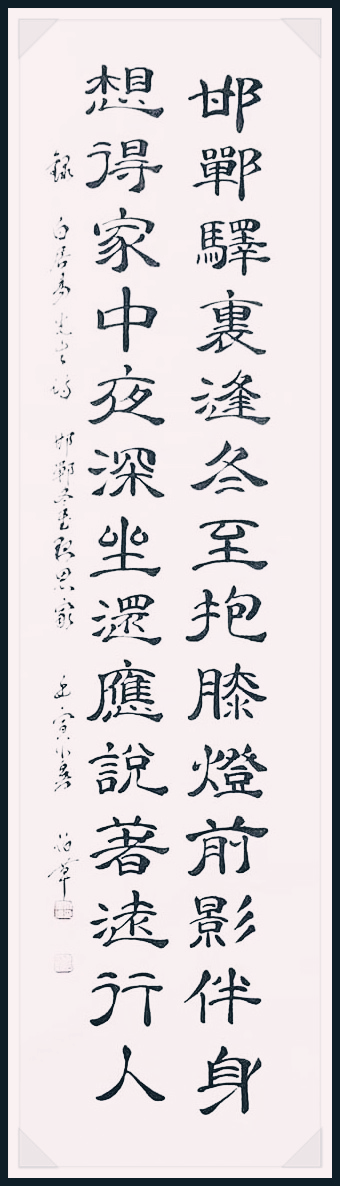 邯鄲驛裏逢冬至抱膝燈前影伴身
想得家中夜深坐還應說著遠行人
錄 白居易 詩 邯鄲冬至夜思家 壬寅